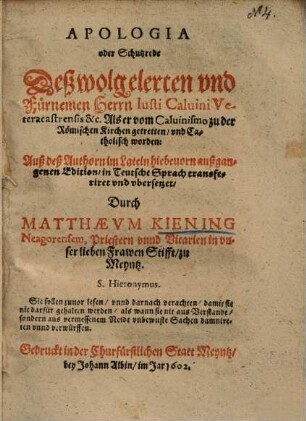 N4.
APOLOGIA
oder Schutzrede
Deß wolgelerten vnd
Fürnemen Herrn Iusti Caluini Ve-
teracastrensis &c. Als er vom Caluinismo zu der
Römischen Kirchen getretten / vnd Ca-
tholisch worden:
Auß deß Authorn im Latein hiebeuorn außgan-
genen Edition / in Teutsche Sprach transfe-
riret vnd vbersetzet /
Durch
MATTHÆVM KIENING
Neagorensem, Priestern vnnd Vicarien in vn-
ser lieben Frawen Stifft / zu
Meyntz.
S. Hieronymus.
Sie sollen zuuor lesen / vnnd darnach verachten / damit sie
nit darfür gehalten werden / als wann sie nit aus Verstande /
sondern aus vermessenem Neidt vnbewuste Sachen damnire-
ten vnnd verwürffen.
Gedruckt in der Churfürstlichen Statt Meyntz /
bey Johann Albin / im Jar 1602.